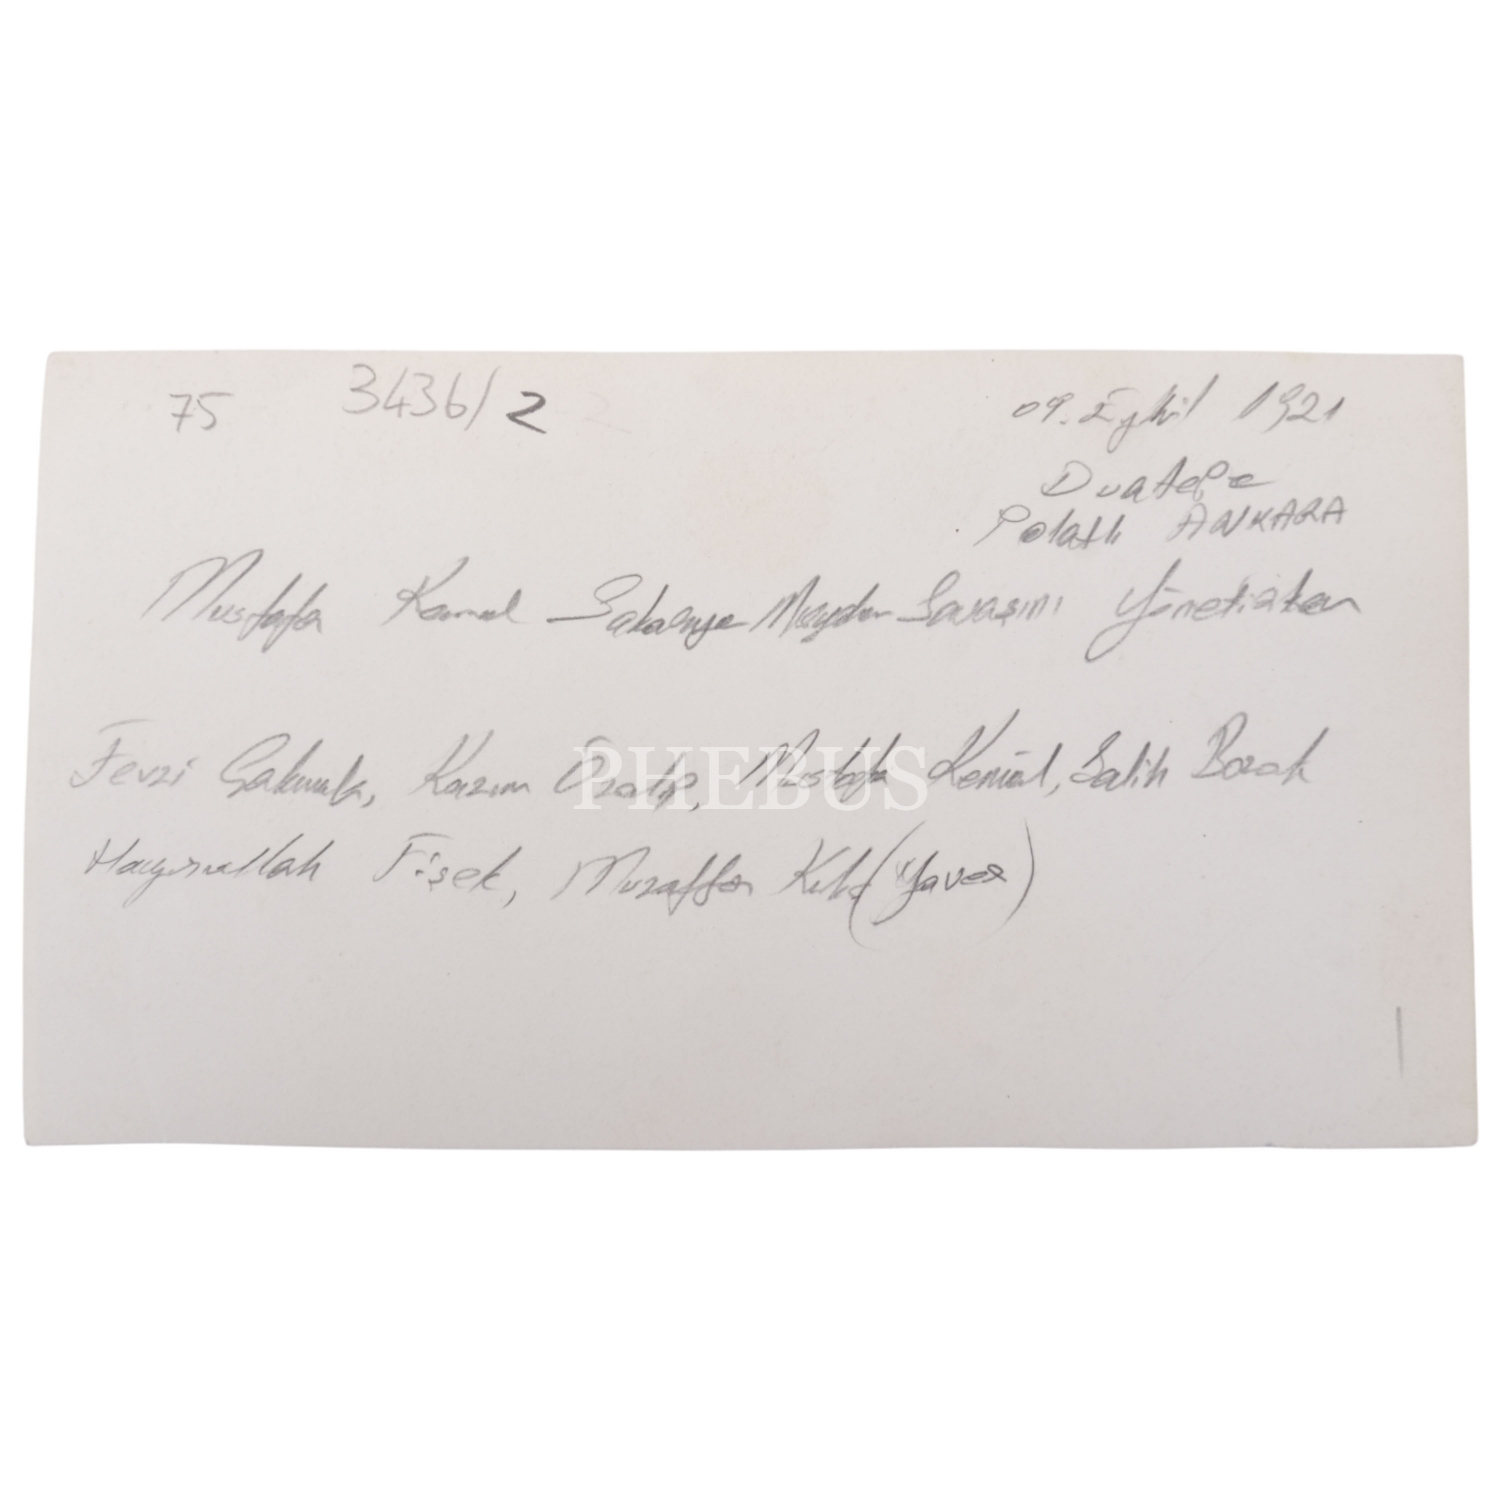 75 3436/2 09. Eylül 1921
Duatepe
Polatlı ANKARA
Mustafa Kemal Sakarya Meydan Savaşını Yönetirken
Fevzi Çakmak, Kazım Özalp, Mustafa Kemal, Salih Bozok
PHEBUS
Hayrullah Fişek, Muzaffer Kılıç (Yaver)